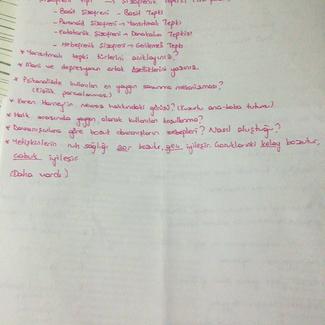 Şizofreni Tipi → Şizofrenik Tepki
- Basit Şizofreni - Basit Tepki
- Paranoid Şizofreni → Yansıtmalı Tepki
- Katatonik Şizofreni → Donakalım Tepkisi
- Hebefrenik Şizofreni → Gerilemeli Tepki
* Yansıtmalı tepki türlerini açıklayınız?
* Mani ve depresyonun ortak özelliklerini yazınız.
* Psikanalizde kullanılan en yaygın savunma mekanizması?
* Karen Horney'in nevroz hakkındaki görüşü? ( ana-baba tutumu)
* Halk arasında yaygın olarak kullanılan koşullanma?
* Davranışçılara göre bozuk davranışların sebepleri? Nasıl oluştuğu?
* Yetişkinlerin ruh sağlığı zor bozulur, geç iyileşir. Çocuklarınki kolay bozulur,
çabuk iyileşir
(Daha vardı)